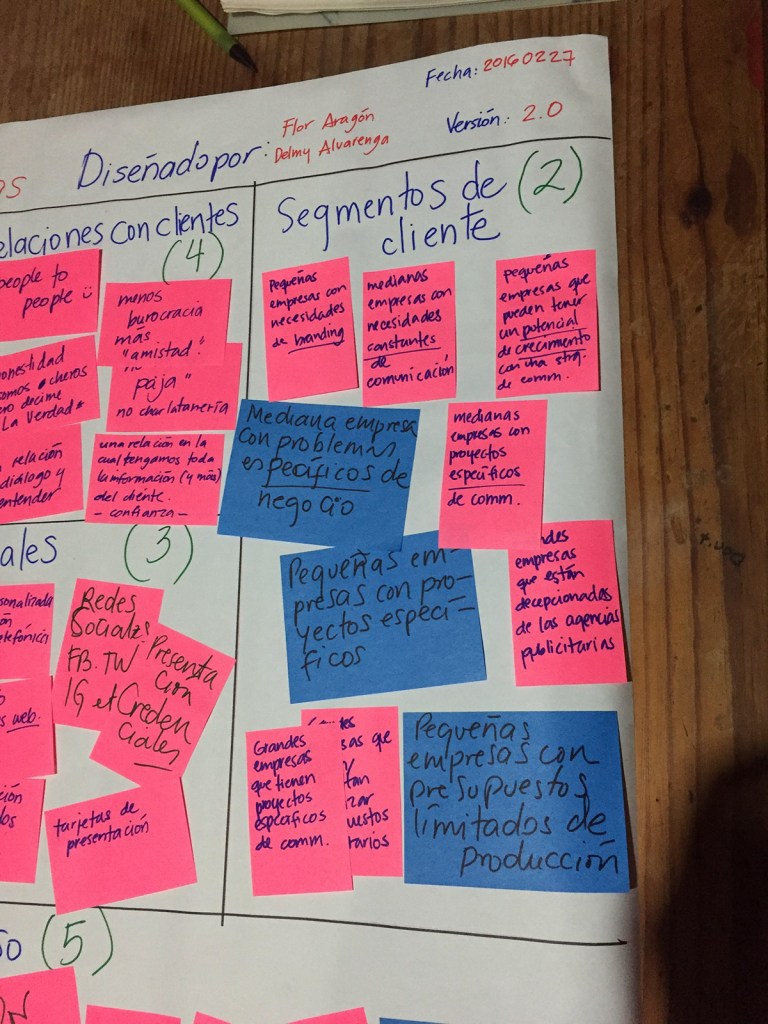 Fecha: 20160227
Diseñado por:
Flor Aragón
Delmy Alvarenga
Versión: 2.0
elaciones con clientes
(4)
people to
people
menos
burocracia
más
"amistad".
onestidad
omos "cheros
decime
La Verdad"
paja"
no charlatanería
relación
diálogo y
entender
una relación en la
cual tengamos toda
la información (y más)
del cliente.
- confianza -
Segmentos de (2)
cliente
Pequeñas
empresas con
necesidades
de branding
medianas
empresas con
necesidades
constantes
de
comunicación
pequeñas
empresas que
pueden tener
un potencial
de crecimiento
con una
de comm.
Mediana empresa
con problemas
específicos de
negocio
medianas
empresas con
proyectos
específicos
de comm.
Pequeñas em-
presas con pro-
yectos especí-
ficos
ndes
empresas
que están
decepcionadas
de las agencias
publicitarias
Grandes
empresas
que tienen
proyectos
específicos
de comm.
sas que
y
tan
zar
uestos
tarios
Pequeñas
empresas con
presupuestos
limitados de
producción
ales
(3)
sonalizada
ón
telefónica
Redes
Sociales
FB. TW
IG et
Presenta
cion
Creden
ciales
web.
ción
dos
tarjetas de
presentación
so (5)